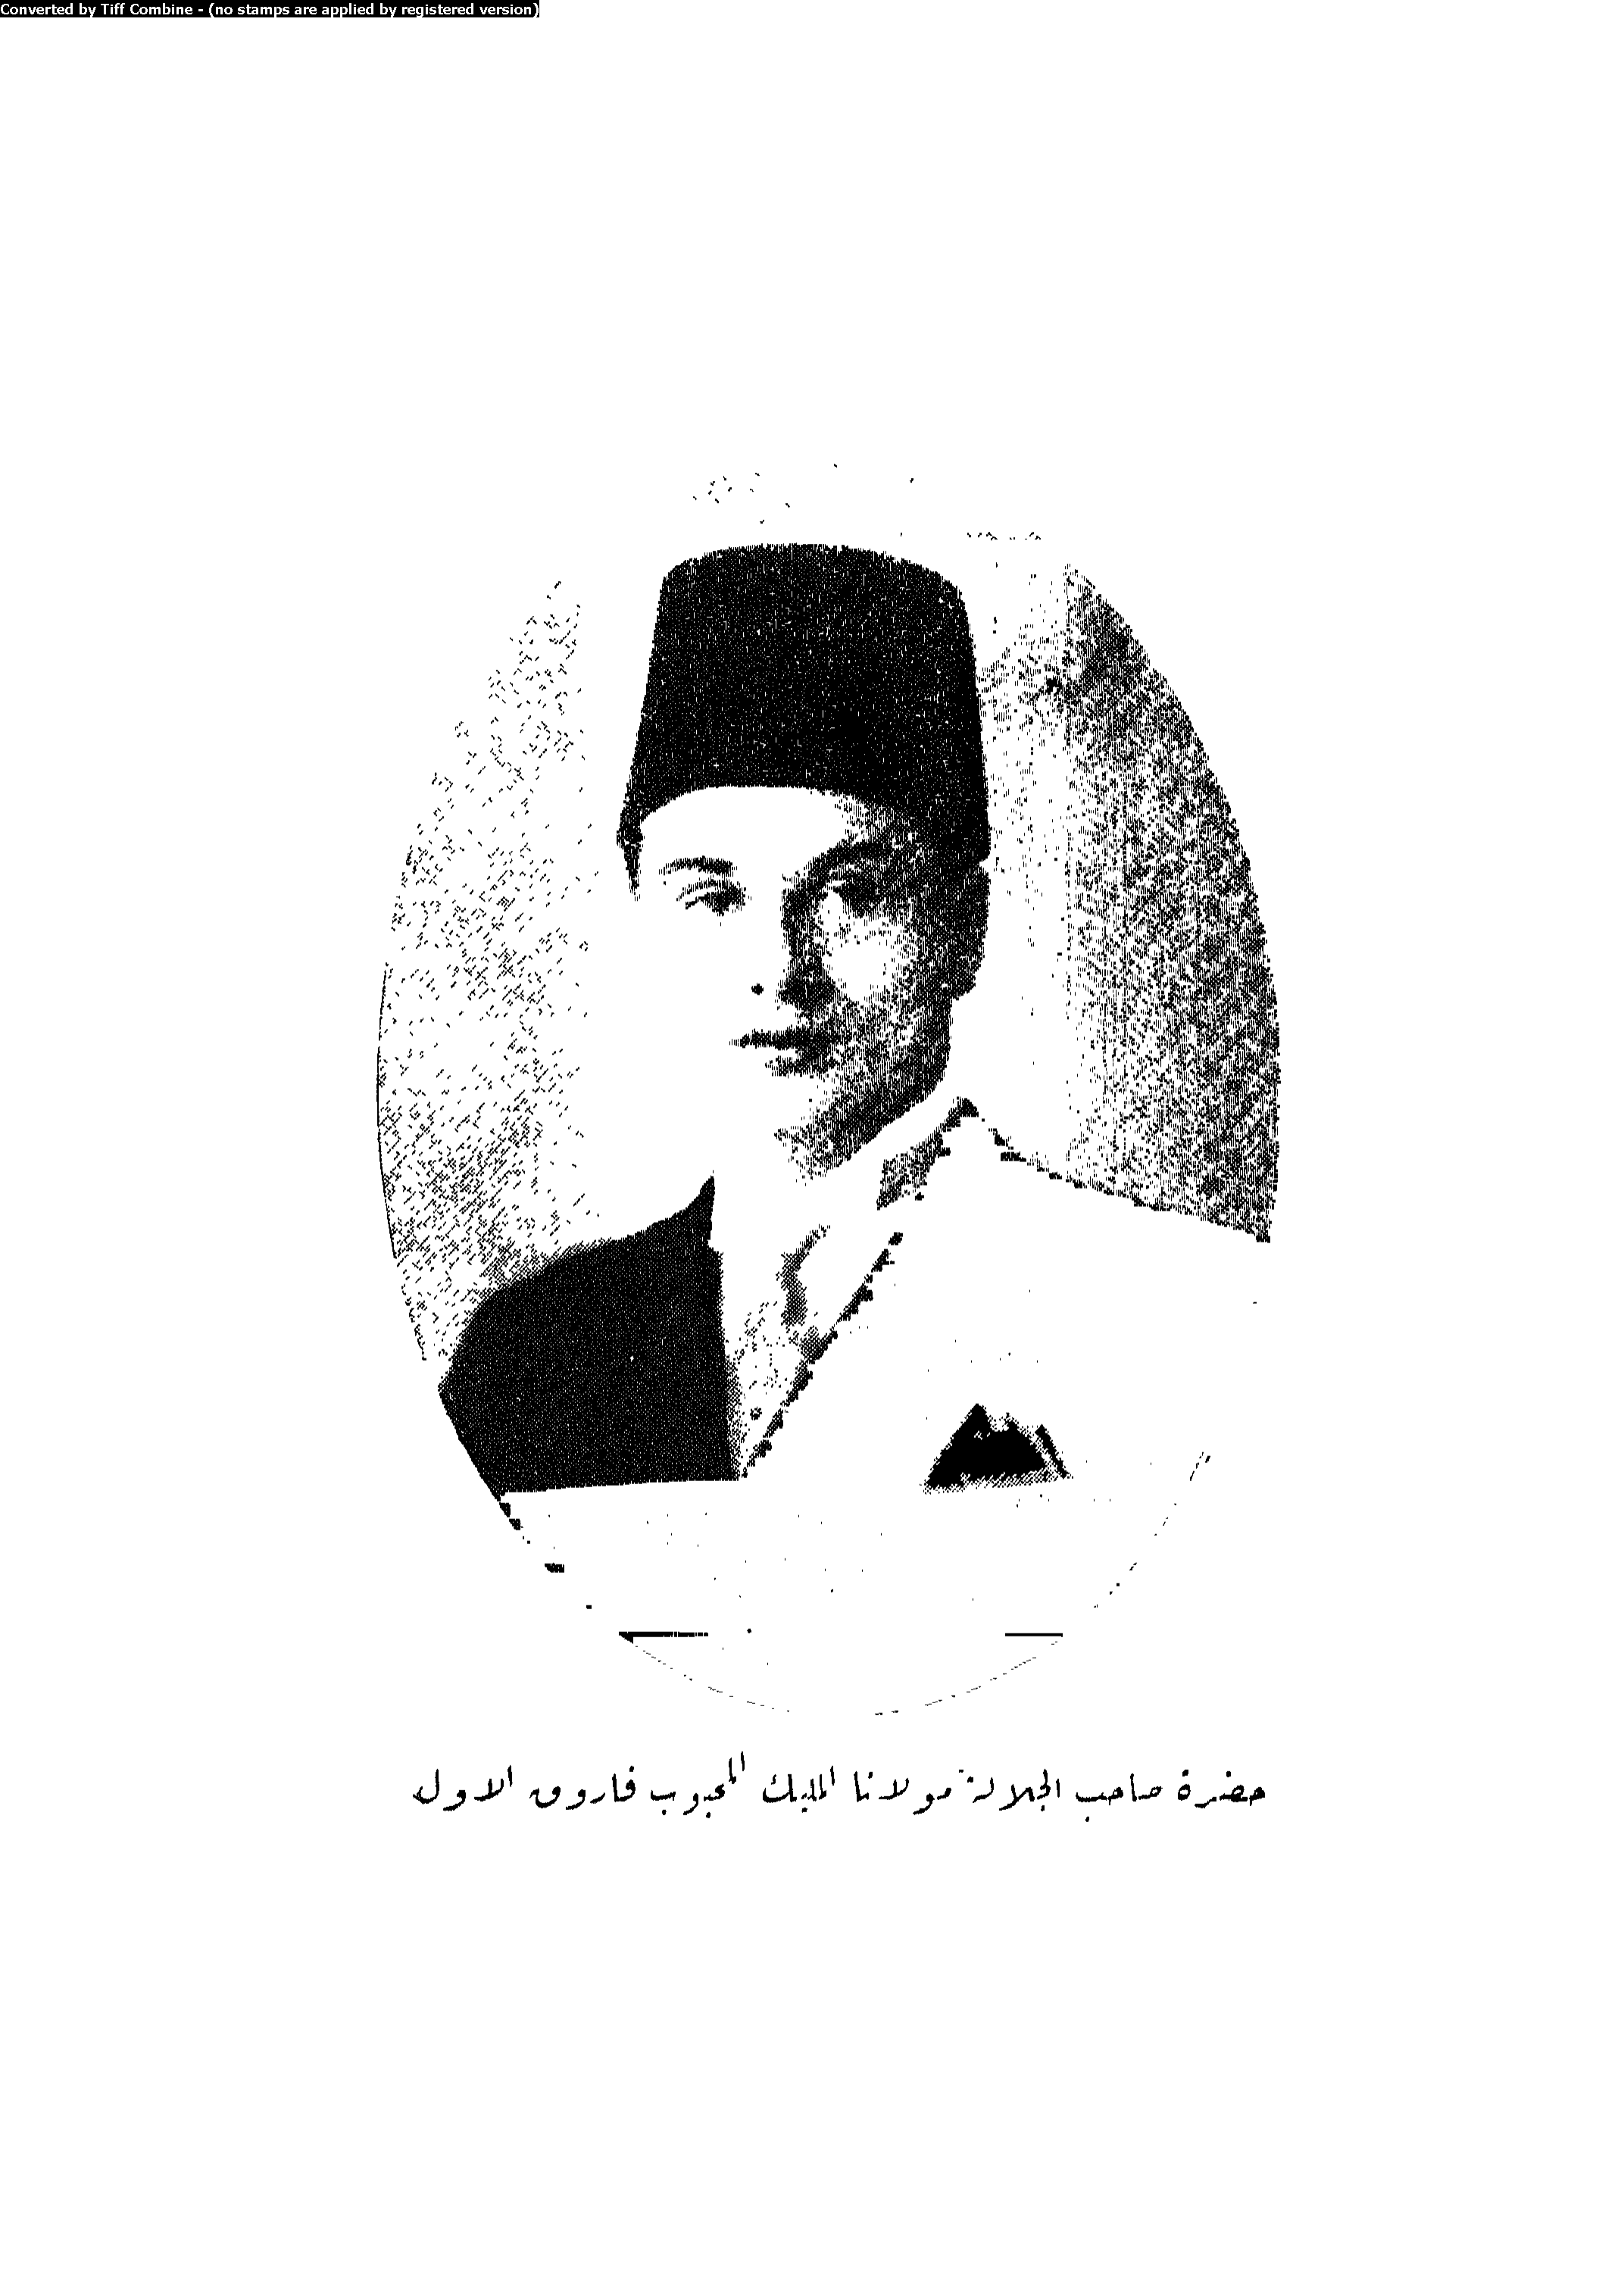 Converted by Tiff Combine - (no stamps are applied by registered version)
حضرة صاحب الجلالة مولانا المليك المحبوب فاروق الاول